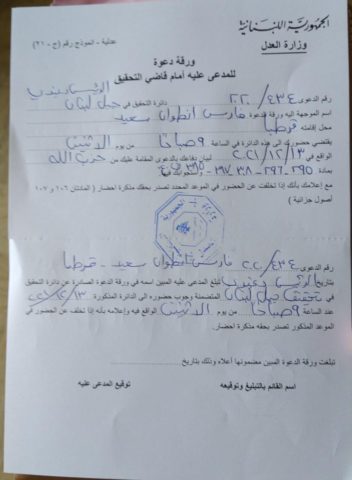 الجمهورية اللبنانية
وزارة العدل
عدلية - النموذج رقم (ج - ٣٦)
ورقة دعوة
للمدعى عليه أمام قاضي التحقيق
رقم الدعوى ٢٢٠/٤٣٤ دائرة التحقيق في جبل لبنان
اسم الموجهة اليه ورقة الدعوة فارس انطوان سعيد
محل إقامته قرطبا
يقتضي حضورك الى هذه الدائرة في الساعة ٩ صباحًا من يوم الاثنين
الواقع في ٢٠٢١/١٢/١٣ لبيان دفاعك بالدعوى المقامة عليك من حزب الله
بمادة ٢٩٥-٢٩٦-
مع إعلامك بأنك إذا تخلفت عن الحضور في الموعد المحدد تصدر بحقك مذكرة احضار (المادتان ١٠٦ و ١٠٧
أصول جزائية)
رقم الدعوى ٢٢٠/٤٣٤ فارس انطوان سعيد - قرطبا
بتاريخ تبلغ المدعى عليه المبين اسمه في ورقة الدعوة الصادرة عن دائرة التحقيق
في جبل لبنان المتضمنة وجوب حضوره الى الدائرة المذكورة
عند الساعة ٩ صباحًا من يوم الاثنين الواقع فيه وإعلامه بأنه إذا تخلف عن الحضور في
الموعد المذكور تصدر بحقه مذكرة احضار.
تبلغت ورقة الدعوة المبين مضمونها أعلاه وذلك بتاريخ
اسم القائم بالتبليغ وتوقيعه
توقيع المدعى عليه